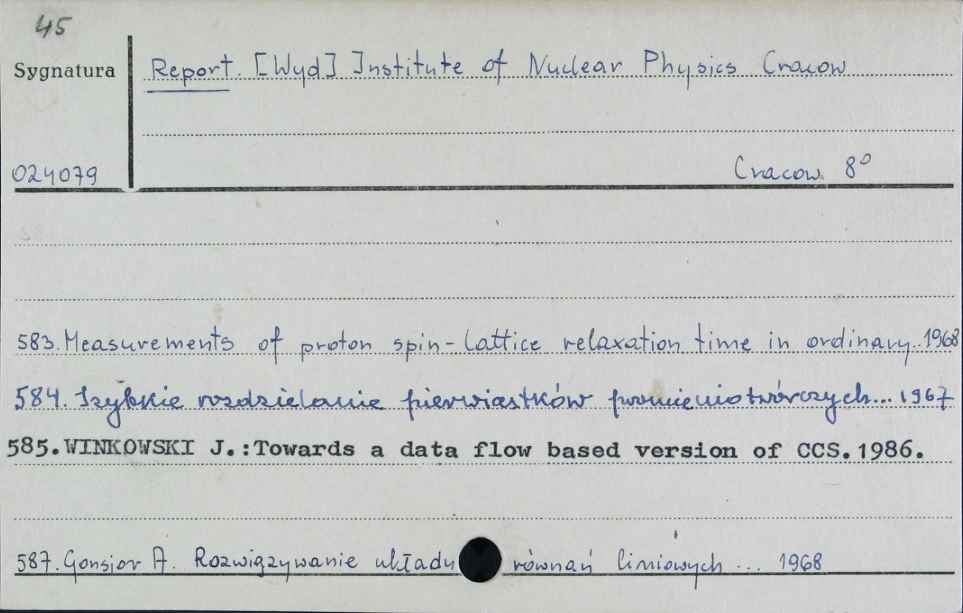 45
Sygnatura
Report. [Wyd] Institute of Nuclear Physics Cracow
024079
Cracow. 8°
583. Measurements of proton spin-lattice relaxation time in ordinary.. 1968
584. Szybkie rozdzielanie pierwiastków promieniotwórczych... 1967
585. WINKOWSKI J.:Towards a data flow based version of CCS. 1986.
587. Gonsior A. Rozwiązywanie układu równań liniowych ... 1968